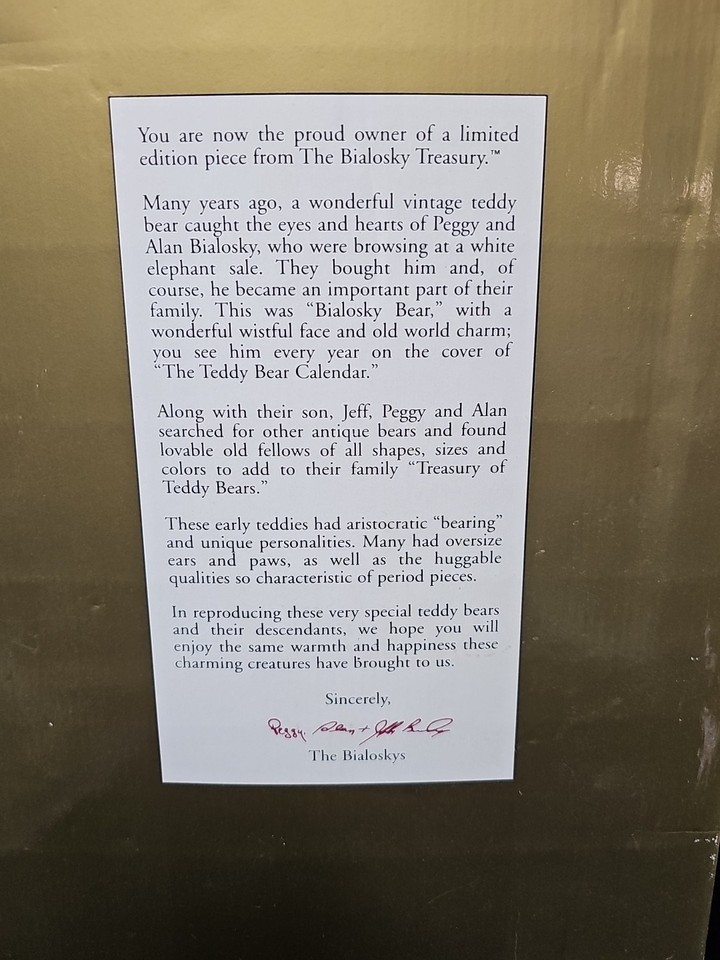 You are now the proud owner of a limited
edition piece from The Bialosky Treasury.™
Many years ago, a wonderful vintage teddy
bear caught the eyes and hearts of Peggy and
Alan Bialosky, who were browsing at a white
elephant sale. They bought him and, of
course, he became an important part of their
family. This was “Bialosky Bear,” with a
wonderful wistful face and old world charm;
you see him every year on the cover of
“The Teddy Bear Calendar.”
Along with their son, Jeff, Peggy and Alan
searched for other antique bears and found
lovable old fellows of all shapes, sizes and
colors to add to their family “Treasury of
Teddy Bears.”
These early teddies had aristocratic “bearing”
and unique personalities. Many had oversize
ears and paws, as well as the huggable
qualities so characteristic of period pieces.
In reproducing these very special teddy bears
and their descendants, we hope you will
enjoy the same warmth and happiness these
charming creatures have brought to us.
Sincerely,
Peggy, Alan +
The Bialoskys